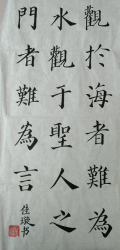 觀於海者難為
水觀于聖人之
門者難為言
佳璇书